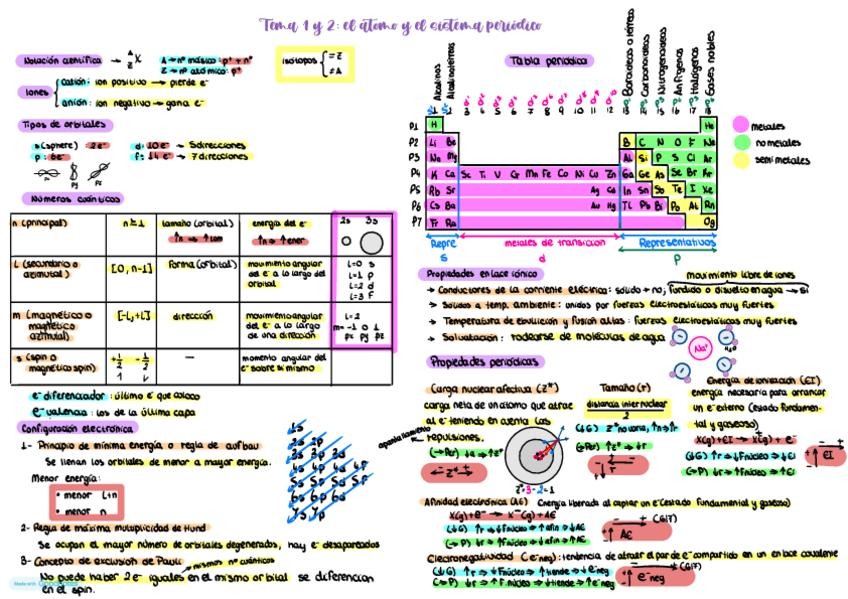 Tema 1 y 2: el átomo y el sistema periódico
Notación científica → A Z X
A → nº másico: p⁺ + nº
Z → nº atómico: p⁺
isotopos { = Z
≠ A
Iones
catión: ion positivo → pierde e⁻
anión: ion negativo → gana e⁻
Tipos de orbitales
s (sphere) 2e⁻
p: 6e⁻
d: 10e⁻ → 5 direcciones
f: 14e⁻ → 7 direcciones
Números cuánticos
n (principal)
n ≥ 1
tamaño (orbital)
↑n ⇒ ↑tam
energía del e⁻
↑n ⇒ ↑ener
2s 3s
l (secundario o azimutal)
[0, n-1]
forma (orbital)
movimiento angular
del e⁻ a lo largo del
orbital
l=0 s
l=1 p
l=2 d
l=3 F
m (magnético o
magnético
azimutal)
[-l, +l]
dirección
movimiento angular
del e⁻ a lo largo
de una dirección
l=2
m= -1 0 1
px py pz
s (spin o
magnético spin)
+1/2 -1/2
—
momento angular del
e⁻ sobre si mismo
e⁻ diferenciador: último e⁻ que coloco
e⁻ valencia: los de la última capa
Configuración electrónica
1- Principio de mínima energía o regla de aufbau
Se llenan los orbitales de menor a mayor energía.
Menor energía:
• menor l+n
• menor n
1s
2s 2p
3s 3p 3d
4s 4p 4d 4F
5s 5p 5d 5F
6s 6p 6d
7s 7p
2- Regla de máxima multiplicidad de Hund
Se ocupan el mayor número de orbitales degenerados, hay e⁻ desapareados
3- Concepto de exclusión de Pauli
mismos nº cuánticos
No puede haber 2 e⁻ iguales en el mismo orbital se diferencian
en el spin.
Made with Goodnotes
Tabla periódica
Alcalinos
Alcalinotérreos
Carbonoideos
Nitrogenoideos
Anfígenos
Halógenos
Gases nobles
3 4 5 6 7 8 9 10 11 12 13 14 15 16 17 18
P1 H He
P2 Li Be B C N O F Ne
P3 Na Mg Al Si P S Cl Ar
P4 K Ca Sc Ti V Cr Mn Fe Co Ni Cu Zn Ga Ge As Se Br Kr
P5 Rb Sr Ag Cd In Sn Sb Te I Xe
P6 Cs Ba Au Hg Tl Pb Bi Po At Rn
P7 Fr Ra Og
metales
no metales
semimetales
Repre
s
metales de transicion
d
Representativos
p
Propiedades enlace iónico
movimiento libre de iones
→ Conductores de la corriente eléctrica: solido → no; fundido o disuelto en agua → si
→ Solidos a temp. ambiente: unidos por fuerzas electroestáticas muy fuertes
→ Temperatura de ebullición y fusión altas: fuerzas electroestáticas muy fuertes
→ Solvatación: rodearse de moléculas de agua
Na⁺
H₂O
Propiedades periódicas
Carga nuclear efectiva (Z*)
carga neta de un átomo que atrae
al e⁻ teniendo en cuenta las
repulsiones.
apantallamiento
← Z* +
Z*=3-2=1
Tamaño (r)
distancia internuclear
2
(↓G) Z* no varia, ↑n ⇒ ↑r
(→Per) ↑Z* ⇒ ↓r
r
Energía de ionización (EI)
energía necesaria para arrancar
un e⁻ externo (estado fundamen-
tal y gaseoso)
X(g) + EI → X⁺(g) + e⁻
EI
Afinidad electrónica (AE)
Energía liberada al captar un e⁻ (estado fundamental y gaseoso)
X(g) + e⁻ → X⁻(g) + AE
AE
Electronegatividad (e⁻neg): tendencia de atraer el par de e⁻ compartido en un enlace covalente
e⁻neg